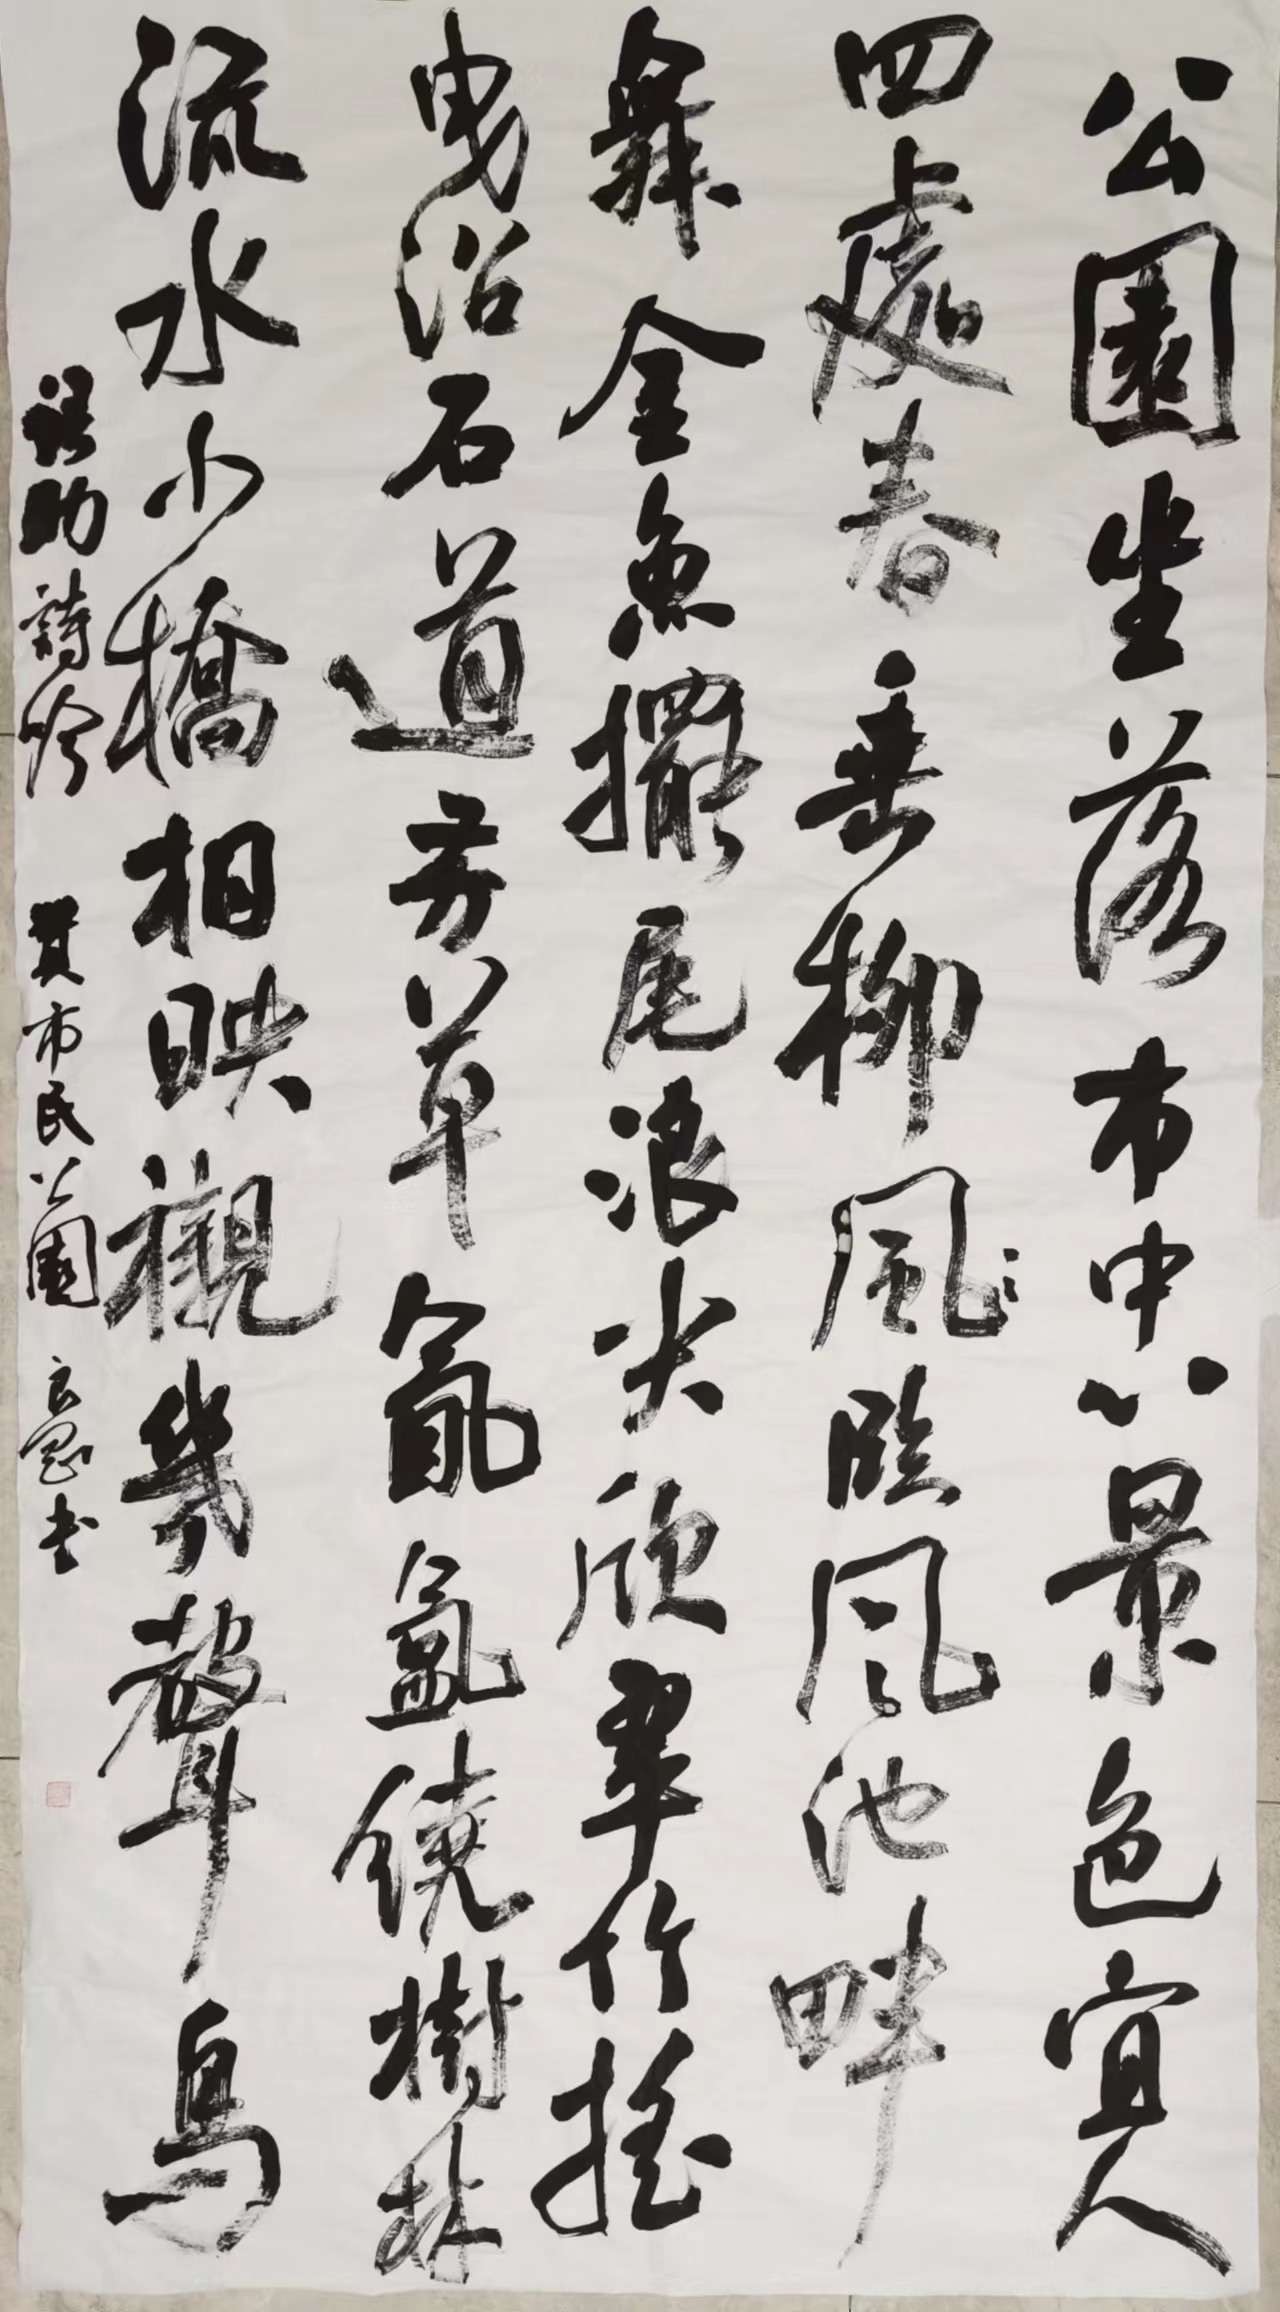 公園坐落市中心景色宜人
四處春垂柳風臨风池畔
舞金魚擺尾浪尖欣翠竹搖
曳沿石道芳草氤氳繞樹林
流水小橋相映襯幾聲鳥
語助詩吟 賞市民公園 书